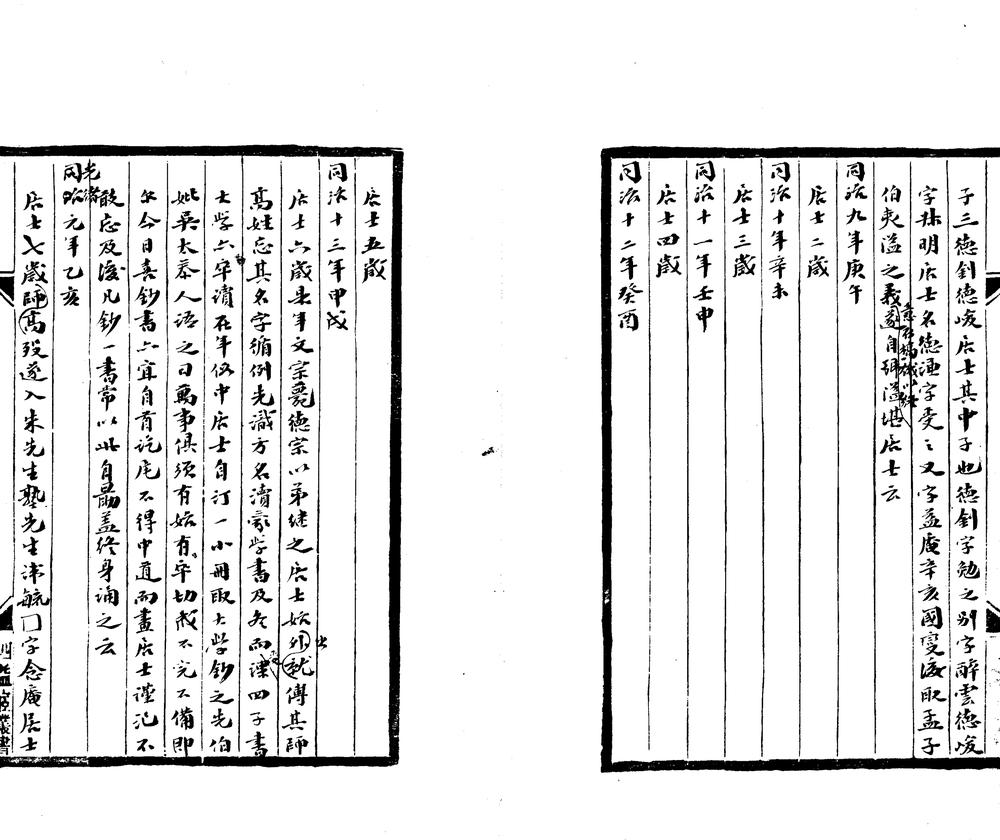 子三德釗德峻居士其中子也德釗字勉之别字醉雲德峻
字明居士名德字受之又字益庵辛亥國變後取孟子
伯夷隘之義遂自號隘堪居士云
同治九年庚午
居士二歲
同治十年辛未
居士三歲
同治十一年壬申
居士四歲
同治十二年癸酉
居士五歲
同治十三年甲戌
居士六歲是年文宗德宗以弟继之居士始外就傅其師
萬姓忘其名字循例先識方名讀學書及冬而課四子書
大學六卒讀在年仮中居士自汀一小冊取大學鈔之先伯
妣吳太泰人語之曰萬事俱須有始有卒切戒不完不備即
今日喜鈔書六宜自首訖尾不得中道而畫居士謹记不
敢忘及後凡鈔一書常以此自勗盖終身誦之云
光緒元年乙亥
居士七歲師萬歿遂入朱先生塾先生沛毓囗字念庵居士